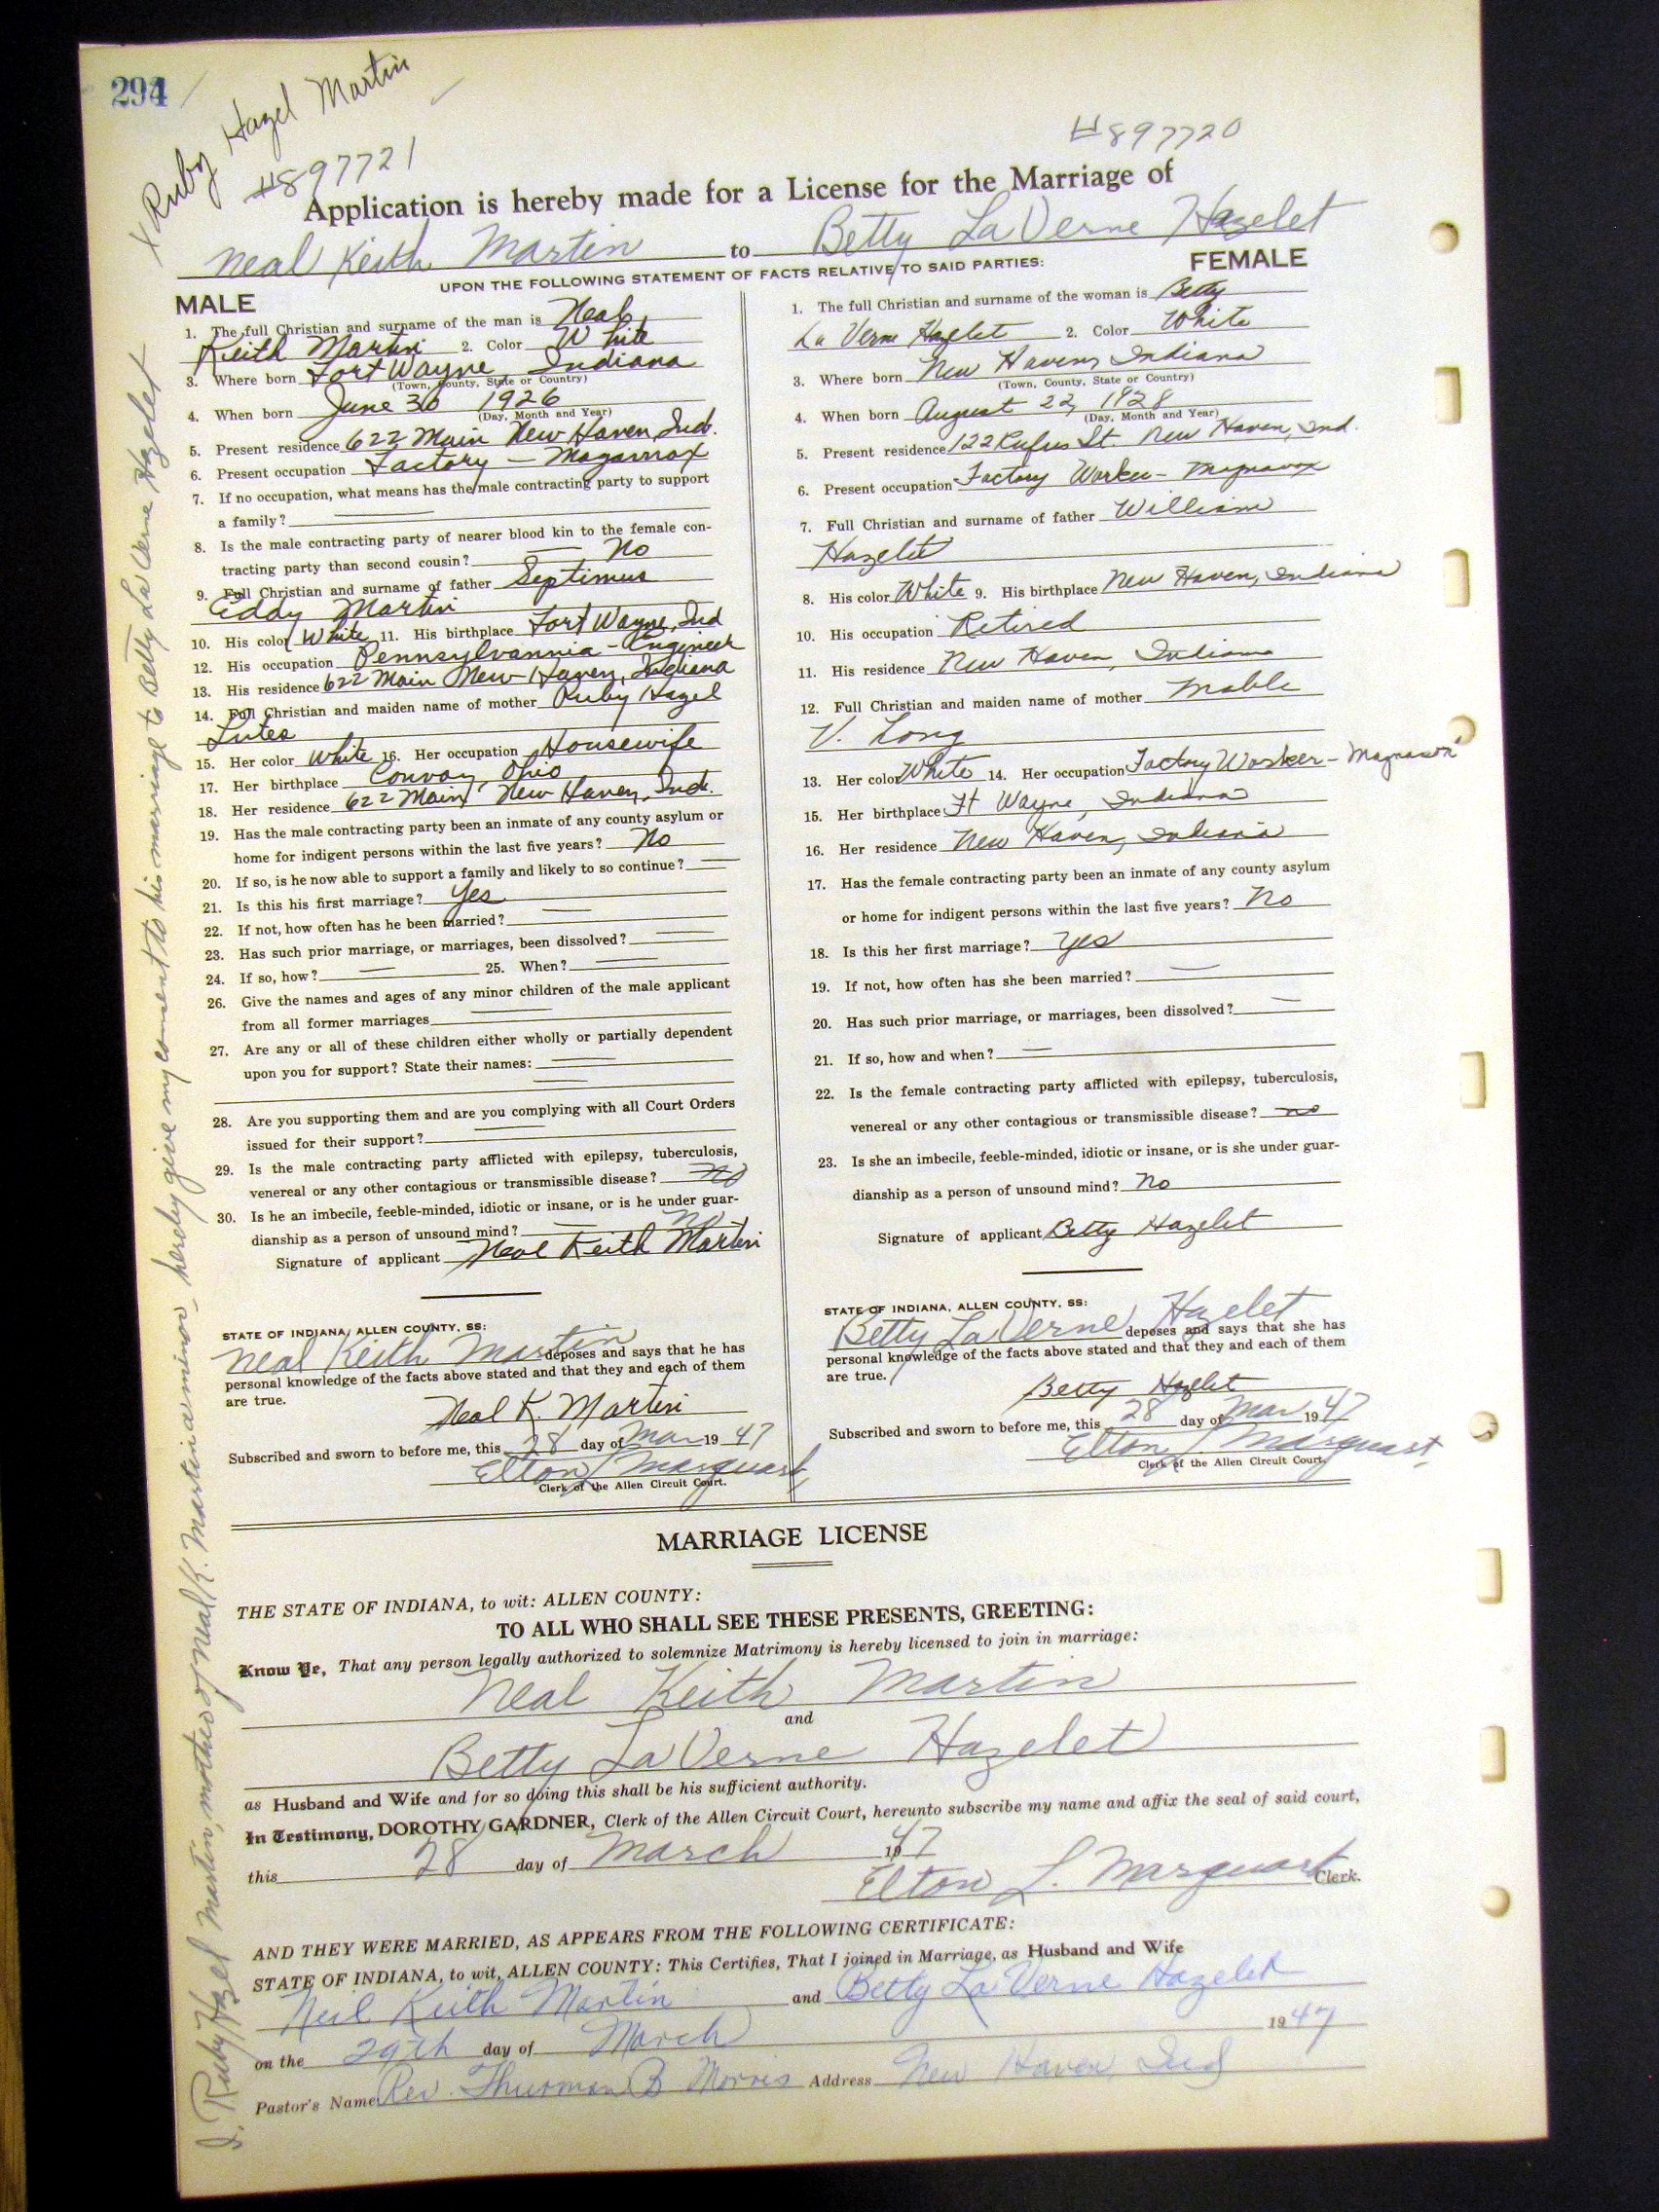 294
X Ruby Hazel Martin
#897721
#897720
Application is hereby made for a License for the Marriage of
Neal Keith Martin to Betty La Verne Hazelet
UPON THE FOLLOWING STATEMENT OF FACTS RELATIVE TO SAID PARTIES:
MALE
1. The full Christian and surname of the man is Neal
Keith Martin 2. Color White
3. Where born Fort Wayne, Indiana
(Town, County, State or Country)
4. When born June 30 1926
(Day, Month and Year)
5. Present residence 622 Main New Haven, Ind.
6. Present occupation Factory — Magarnox
7. If no occupation, what means has the male contracting party to support
a family?
8. Is the male contracting party of nearer blood kin to the female con-
tracting party than second cousin? — No
9. Full Christian and surname of father Septimus
Eddy Martin
10. His color White 11. His birthplace Fort Wayne, Ind
12. His occupation Pennsylvannia - Engineer
13. His residence 622 Main New Haven, Indiana
14. Full Christian and maiden name of mother Ruby Hazel
Lutes
15. Her color White 16. Her occupation Housewife
17. Her birthplace Convoy, Ohio
18. Her residence 622 Main New Haven, Ind.
19. Has the male contracting party been an inmate of any county asylum or
home for indigent persons within the last five years? No
20. If so, is he now able to support a family and likely to so continue? —
21. Is this his first marriage? Yes
22. If not, how often has he been married? —
23. Has such prior marriage, or marriages, been dissolved? —
24. If so, how? — 25. When? —
26. Give the names and ages of any minor children of the male applicant
from all former marriages —
27. Are any or all of these children either wholly or partially dependent
upon you for support? State their names: —
28. Are you supporting them and are you complying with all Court Orders
issued for their support? —
29. Is the male contracting party afflicted with epilepsy, tuberculosis,
venereal or any other contagious or transmissible disease? No
30. Is he an imbecile, feeble-minded, idiotic or insane, or is he under guar-
dianship as a person of unsound mind? — no
Signature of applicant Neal Keith Martin
STATE OF INDIANA, ALLEN COUNTY, SS:
Neal Keith Martin deposes and says that he has
personal knowledge of the facts above stated and that they and each of them
are true.
Neal K. Martin
Subscribed and sworn to before me, this 28 day of Mar 19 47
Elton L Marquart
Clerk of the Allen Circuit Court.
FEMALE
1. The full Christian and surname of the woman is Betty
La Verne Hazelet 2. Color White
3. Where born New Haven, Indiana
(Town, County, State or Country)
4. When born August 22, 1928
(Day, Month and Year)
5. Present residence 122 Rufus St. New Haven, Ind.
6. Present occupation Factory Worker - Magnavox
7. Full Christian and surname of father William
Hazelet
8. His color White 9. His birthplace New Haven, Indiana
10. His occupation Retired
11. His residence New Haven, Indiana
12. Full Christian and maiden name of mother Mable
V. Long
13. Her color White 14. Her occupation Factory Worker - Magnavox
15. Her birthplace Ft Wayne, Indiana
16. Her residence New Haven, Indiana
17. Has the female contracting party been an inmate of any county asylum
or home for indigent persons within the last five years? No
18. Is this her first marriage? yes
19. If not, how often has she been married? —
20. Has such prior marriage, or marriages, been dissolved? —
21. If so, how and when? —
22. Is the female contracting party afflicted with epilepsy, tuberculosis,
venereal or any other contagious or transmissible disease? no
23. Is she an imbecile, feeble-minded, idiotic or insane, or is she under guar-
dianship as a person of unsound mind? No
Signature of applicant Betty Hazelet
STATE OF INDIANA, ALLEN COUNTY, SS:
Betty La Verne Hazelet deposes and says that she has
personal knowledge of the facts above stated and that they and each of them
are true.
Betty Hazelet
Subscribed and sworn to before me, this 28 day of Mar 19 47
Elton L Marquart
Clerk of the Allen Circuit Court.
MARRIAGE LICENSE
THE STATE OF INDIANA, to wit: ALLEN COUNTY:
TO ALL WHO SHALL SEE THESE PRESENTS, GREETING:
Know Ye, That any person legally authorized to solemnize Matrimony is hereby licensed to join in marriage:
Neal Keith Martin
and
Betty La Verne Hazelet
as Husband and Wife and for so doing this shall be his sufficient authority.
In Testimony, DOROTHY GARDNER, Clerk of the Allen Circuit Court, hereunto subscribe my name and affix the seal of said court,
this 28 day of March 1947
Elton L. Marquart Clerk.
AND THEY WERE MARRIED, AS APPEARS FROM THE FOLLOWING CERTIFICATE:
STATE OF INDIANA, to wit, ALLEN COUNTY: This Certifies, That I joined in Marriage, as Husband and Wife
Neil Keith Martin and Betty La Verne Hazelet
on the 29th day of March 1947
Pastor's Name Rev. Thurman B Morris Address New Haven, Ind
I, Ruby Hazel Martin, mother of Neal K. Martin a minor - hereby give my consent to his marriage to Betty La Verne Hazelet